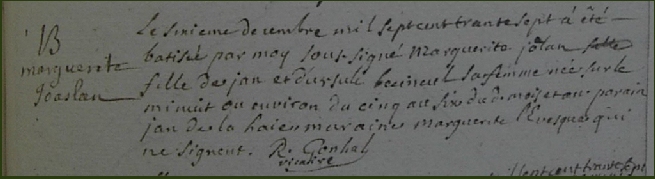 B
marguerite
Joaslan
Le sixieme decembre mil sept cent trante sept á été
batisé par moy sous signé Marguerite jôlan
fille de jan et dursule sa femme née sur le
minuit ou environ du cinq au six du d. mois et an parain
jan de la haie maraine marguerite l'evesque qui
ne signent. R. Gonhal
vicaire
sept cent trante sept